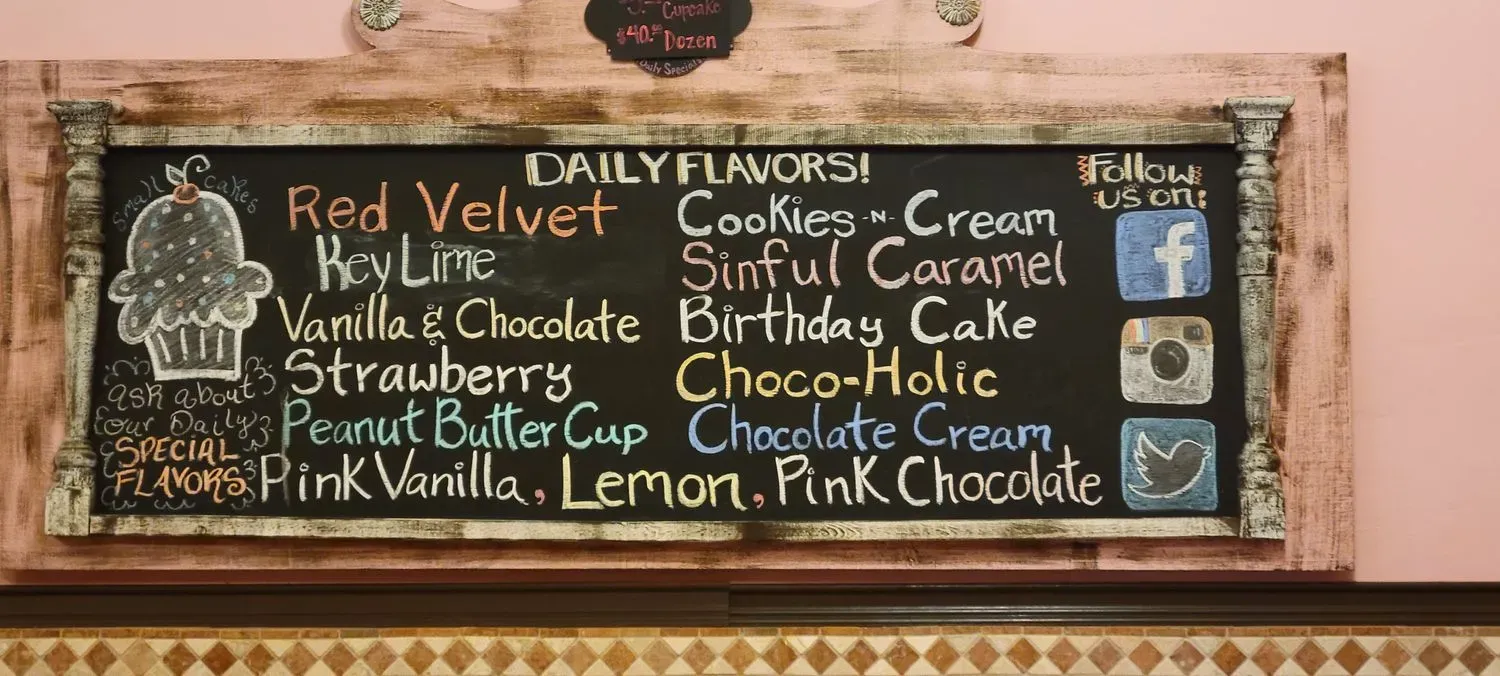 Cupcake
$40.00 Dozen
Daily Special
DAILY FLAVORS!
small cakes
Red Velvet
Key Lime
Vanilla & Chocolate
Strawberry
Peanut Butter Cup
Cookies-N-Cream
Sinful Caramel
Birthday Cake
Choco-Holic
Chocolate Cream
Pink Vanilla, Lemon, Pink Chocolate
ask about
our Daily
SPECIAL
FLAVORS
Follow
us on:
f